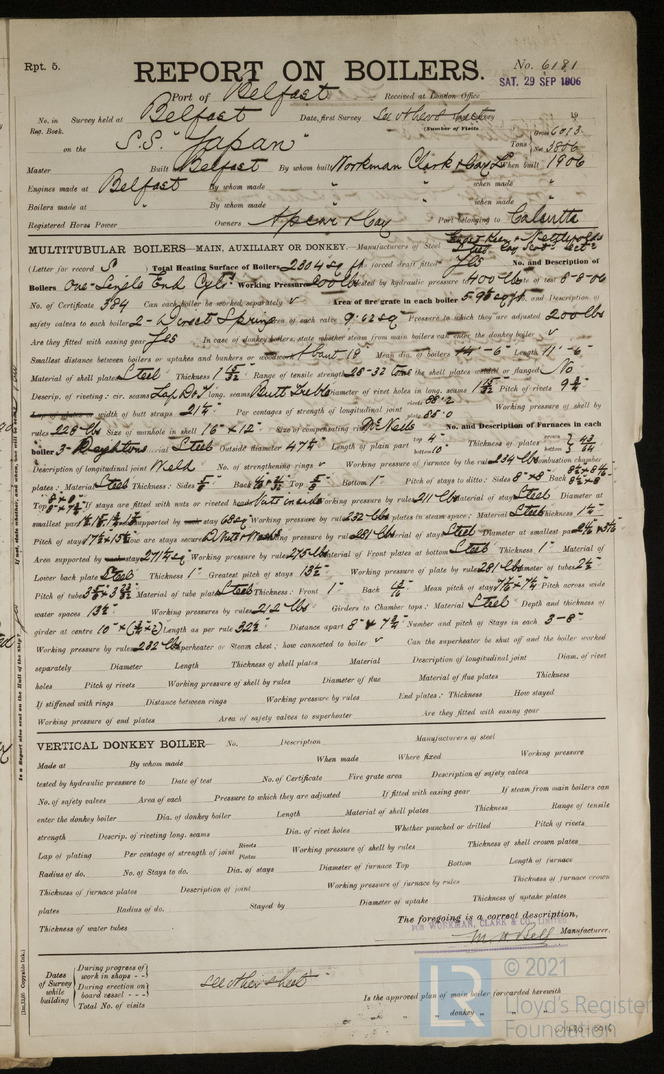 Rpt. 5.
No. 6181
REPORT ON BOILERS.
SAT. 29 SEP 1906
Port of Belfast Received at London Office
No. in Survey held at Belfast Date, first Survey See other sheet 19
Reg. Book. (Number of Visits Gross 6013
on the S.S. "Japan" Tons Net 3806
Master Built Belfast By whom built Workman Clark & Coy Ld When built 1906
Engines made at Belfast By whom made " when made "
Boilers made at " By whom made " when made "
Registered Horse Power Owners Apcar & Coy Port belonging to Calcutta
MULTITUBULAR BOILERS—MAIN, AUXILIARY OR DONKEY.—Manufacturers of Steel
(Letter for record S) Total Heating Surface of Boilers 2304 sq ft forced draft fitted Yes No. and Description of
Boilers One-Single End Cyl. Working Pressure 200 lbs Tested by hydraulic pressure to 400 lbs Date of test 8-8-06
No. of Certificate 384 Can each boiler be worked separately ✓ Area of fire grate in each boiler 59.5 sq ft No. and Description of
safety valves to each boiler 2 - Direct Spring Area of each valve 9.62 sq" Pressure to which they are adjusted 200 lbs
Are they fitted with easing gear Yes In case of donkey boilers, state whether steam from main boilers can enter the donkey boiler ✓
Smallest distance between boilers or uptakes and bunkers or woodwork about 18" Mean dia. of boilers 14'-6" Length 11'-6"
Material of shell plates Steel Thickness 1 15/32 Range of tensile strength 28-32 tons Are the shell plates welded or flanged No
Descrip. of riveting: cir. seams Lap D.R. long. seams Butt Treble Diameter of rivet holes in long. seams 1 15/32 Pitch of rivets 9 3/4
Lap of plates or width of butt straps 21 1/4" Per centages of strength of longitudinal joint rivets 88.2 plate 85.0 Working pressure of shell by
rules 228 lbs Size of manhole in shell 16" x 12" Size of compensating ring McNeils No. and Description of Furnaces in each
boiler 3 - Deighton Material Steel Outside diameter 47 1/4" Length of plain part top 4" bottom 10" Thickness of plates crown bottom } 43/64
Description of longitudinal joint Weld No. of strengthening rings ✓ Working pressure of furnace by the rules 234 lbs Combustion chamber
plates: Material Steel Thickness: Sides 5/8 Back Top 5/8 Bottom 1" Pitch of stays to ditto: Sides 8" x 8" Back
Top If stays are fitted with nuts or riveted heads Nuts inside Working pressure by rules 211 lbs Material of stays Steel Diameter at
smallest part Area supported by each stay 68 sq" Working pressure by rules 232 lbs End plates in steam space: Material Steel Thickness
Pitch of stays How are stays secured D. Nuts & Wash. Working pressure by rules Material of stays Steel Diameter at smallest part
Area supported by each stay 271 1/4 sq" Working pressure by rules 275 lbs Material of Front plates at bottom Steel Thickness 1" Material of
Lower back plate Steel Thickness 1" Greatest pitch of stays 13 1/2" Working pressure of plate by rules 281 lbs Diameter of tubes 2 1/2"
Pitch of tubes Material of tube plates Steel Thickness: Front 1" Back Mean pitch of stays Pitch across wide
water spaces 13 1/2" Working pressures by rules 212 lbs Girders to Chamber tops: Material Steel Depth and thickness of
girder at centre Length as per rule 32 1/2" Distance apart 8" & 7 3/4" Number and pitch of Stays in each 3-8"
Working pressure by rules 232 lbs Superheater or Steam chest; how connected to boiler ✓ Can the superheater be shut off and the boiler worked
separately Diameter Length Thickness of shell plates Material Description of longitudinal joint Diam. of rivet
holes Pitch of rivets Working pressure of shell by rules Diameter of flue Material of flue plates Thickness
If stiffened with rings Distance between rings Working pressure by rules End plates: Thickness How stayed
Working pressure of end plates Area of safety valves to superheater Are they fitted with easing gear
VERTICAL DONKEY BOILER— No. Description Manufacturers of steel
Made at By whom made When made Where fixed Working pressure
tested by hydraulic pressure to Date of test No. of Certificate Fire grate area Description of safety valves
No. of safety valves Area of each Pressure to which they are adjusted If fitted with easing gear If steam from main boilers can
enter the donkey boiler Dia. of donkey boiler Length Material of shell plates Thickness Range of tensile
strength Descrip. of riveting long. seams Dia. of rivet holes Whether punched or drilled Pitch of rivets
Lap of plating Per centage of strength of joint Rivets Plates Working pressure of shell by rules Thickness of shell crown plates
Radius of do. No. of Stays to do. Dia. of stays Diameter of furnace Top Bottom Length of furnace
Thickness of furnace plates Description of joint Working pressure of furnace by rules Thickness of furnace crown
plates Radius of do. Stayed by Diameter of uptake Thickness of uptake plates
Thickness of water tubes
The foregoing is a correct description,
FOR WORKMAN, CLARK & CO. LIMITED,
Manufacturer.
Dates of Survey while building
During progress of work in shops - -
During erection on board vessel - - -
Total No. of visits
see other sheet
Is the approved plan of main boiler forwarded herewith
" " " donkey " " "
LR
© 2021
Lloyd's Register
Foundation